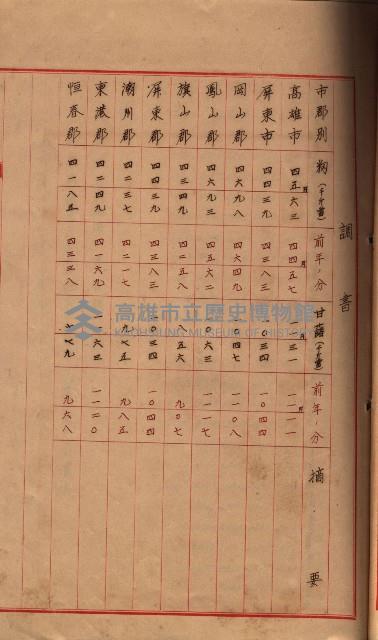 調書
市郡別 籾(千斤當) 前年ノ分 甘藷(千斤當) 前年ノ分 摘要
高雄市 四五六三 四四五七 三一 一一一一
屏東市 四四三九 四三八三 〇三四 一〇四四
岡山郡 四六九八 四四四九 〇四七 一一〇八
鳳山郡 四六九三 四五六二 〇六三 一一一七
旗山郡 四三四九 四二五八 五六 九〇七
屏東郡 四四三九 四三八三 〇三四 一〇四四
潮州郡 四二三七 四二一七 九七五 九八五
東港郡 四二四九 四一六九 六三 一一二〇
恒春郡 四一八五 四三三八 七九 九六八
高雄市立歷史博物館
KAOHSIUNG MUSEUM OF HISTORY